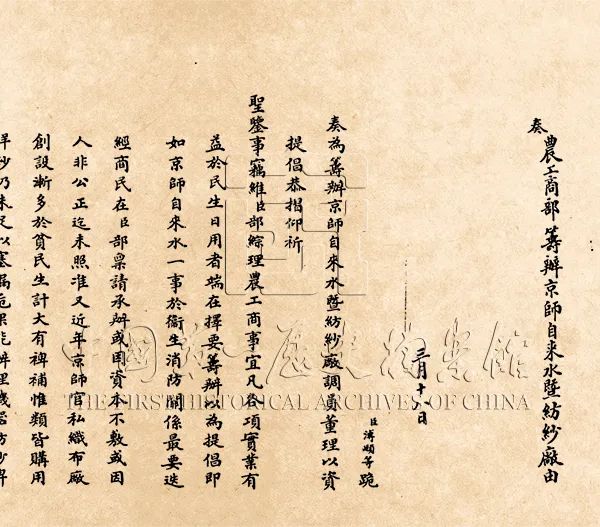 奏
農工商部籌辦京師自来水暨紡紗廠由
三月十八日
臣溥頲等跪
奏為籌辦京師自来水暨紡紗廠調員董理以資
提倡恭摺仰祈
聖鑒事竊維臣部綜理農工商事宜凡各項實業有
益於民生日用者端在擇要籌辦以為提倡即
如京師自來水一事於衞生消防關係最要迭
經商民在臣部稟請承辦或因資本不敷或因
人非公正迄未照准又近年京師官私織布廠
創設漸多於貧民生計大有裨補惟類皆購用
中國第一歷史檔案館
THE FIRST HISTORICAL ARCHIVES OF CHINA